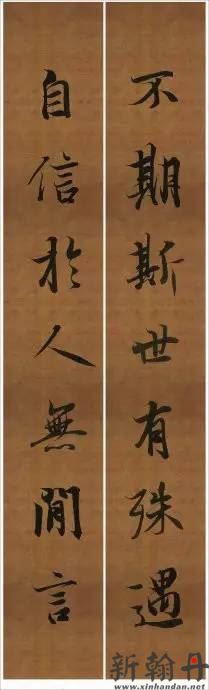 不期斯世有殊遇
自信於人無閒言
新翰丹
www.xinhandan.net